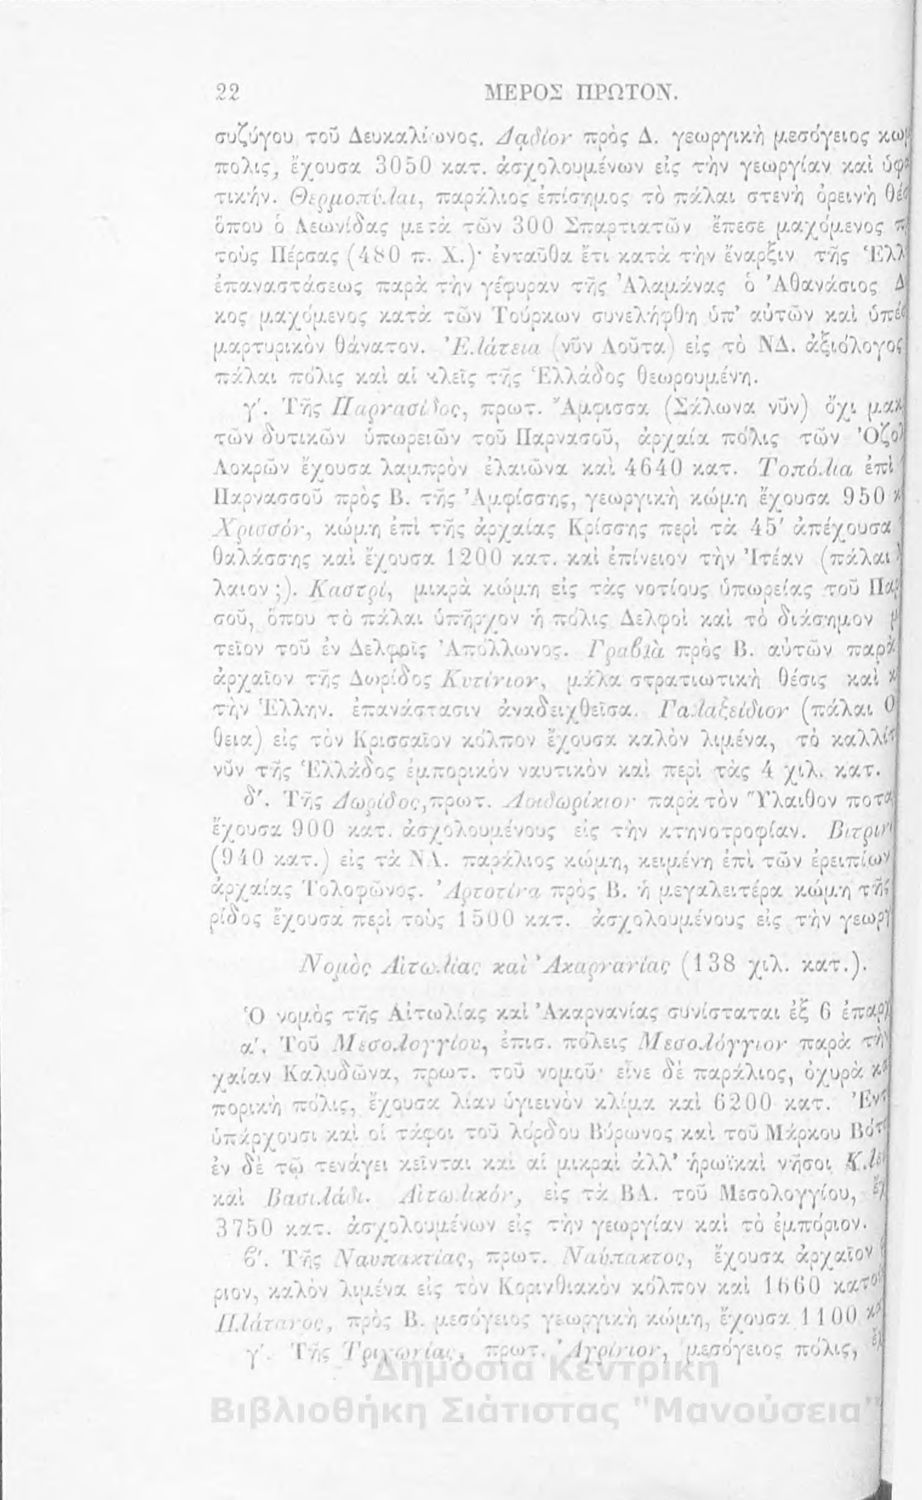 22 ΜΕΡΟΣ ΠΡΩΤΟΝ.
συζύγου τοῦ Δευκαλίωνος. Δαδίον πρὸς Δ. γεωργικὴ μεσόγειος
πολις, ἔχουσα 3050 κατ. ἀσχολουμένων εἰς τὴν γεωργίαν καὶ
τικήν. Θερμοπύλαι, παράλιος ἐπίσημος τὸ πάλαι στενὴ ὀρεινὴ
ὅπου ὁ Λεωνίδας μετὰ τῶν 300 Σπαρτιατῶν ἔπεσε μαχόμενος
τοὺς Πέρσας (480 π. Χ.)· ἐνταῦθα ἔτι κατὰ τὴν ἔναρξιν τῆς
ἐπαναστάσεως παρὰ τὴν γέφυραν τῆς Ἀλαμάνας ὁ Ἀθανάσιος
κος μαχόμενος κατὰ τῶν Τούρκων συνελήφθη ὑπ' αὐτῶν καὶ
μαρτυρικὸν θάνατον. Ἐλάτεια (νῦν Λοῦτα) εἰς τὸ ΝΔ. ἀξιόλογος
πάλαι πόλις καὶ αἱ κλεῖς τῆς Ἑλλάδος θεωρουμένη.
γ'. Τῆς Παρνασίδος, πρωτ. Ἄμφισσα (Σάλωνα νῦν) ὄχι
τῶν δυτικῶν ὑπωρειῶν τοῦ Παρνασοῦ, ἀρχαία πόλις τῶν
Λοκρῶν ἔχουσα λαμπρὸν ἐλαιῶνα καὶ 4640 κατ. Τοπόλια ἐπὶ
Παρνασσοῦ πρὸς Β. τῆς Ἀμφίσσης, γεωργικὴ κώμη ἔχουσα 950
Χρισσόν, κώμη ἐπὶ τῆς ἀρχαίας Κρίσσης περὶ τὰ 45' ἀπέχουσα
θαλάσσης καὶ ἔχουσα 1200 κατ. καὶ ἐπίνειον τὴν Ἰτέαν (πάλαι
λαιον ;). Καστρί, μικρὰ κώμη εἰς τὰς νοτίους ὑπωρείας τοῦ
σοῦ, ὅπου τὸ πάλαι ὑπῆρχον ἡ πόλις Δελφοὶ καὶ τὸ διάσημον
τεῖον τοῦ ἐν Δελφοῖς Ἀπόλλωνος. Γραβιὰ πρὸς Β. αὐτῶν
ἀρχαῖον τῆς Δωρίδος Κυτίνιον, μάλα στρατιωτικὴ θέσις καὶ
τὴν Ἑλλην. ἐπανάστασιν ἀναδειχθεῖσα. Γαλαξείδιον (πάλαι
θεια) εἰς τὸν Κρισσαῖον κόλπον ἔχουσα καλὸν λιμένα, τὸ
νῦν τῆς Ἑλλάδος ἐμπορικὸν ναυτικὸν καὶ περὶ τὰς 4 χιλ. κατ.
δ'. Τῆς Δωρίδος, πρωτ. Λοιδωρίκιον παρὰ τὸν Ὕλαιθον
ἔχουσα 900 κατ. ἀσχολουμένους εἰς τὴν κτηνοτροφίαν.
(940 κατ.) εἰς τὰ ΝΔ. παράλιος κώμη, κειμένη ἐπὶ τῶν ἐρειπίων
ἀρχαίας Τολοφῶνος. Ἀρτοτίνα πρὸς Β. ἡ μεγαλειτέρα κώμη τῆς
ρίδος ἔχουσα περὶ τοὺς 1500 κατ. ἀσχολουμένους εἰς τὴν
Νομὸς Αἰτωλίας καὶ Ἀκαρνανίας (138 χιλ. κατ.).
Ὁ νομὸς τῆς Αἰτωλίας καὶ Ἀκαρνανίας συνίσταται ἐξ 6
α'. Τοῦ Μεσολογγίου, ἐπισ. πόλεις Μεσολόγγιον παρὰ τὴν
χαίαν Καλυδῶνα, πρωτ. τοῦ νομοῦ· εἶνε δὲ παράλιος, ὀχυρὰ
πορικὴ πόλις, ἔχουσα λίαν ὑγιεινὸν κλίμα καὶ 6200 κατ.
ὑπάρχουσι καὶ οἱ τάφοι τοῦ λόρδου Βύρωνος καὶ τοῦ Μάρκου
ἐν δὲ τῷ τενάγει κεῖνται καὶ αἱ μικραὶ ἀλλ' ἡρωϊκαὶ νῆσοι
καὶ Βασιλάδι. Αἰτωλικόν, εἰς τὰ ΒΔ. τοῦ Μεσολογγίου,
3750 κατ. ἀσχολουμένων εἰς τὴν γεωργίαν καὶ τὸ ἐμπόριον.
β'. Τῆς Ναυπακτίας, πρωτ. Ναύπακτος, ἔχουσα ἀρχαῖον
ριον, καλὸν λιμένα εἰς τὸν Κορινθιακὸν κόλπον καὶ 1660
Πλάτανος, πρὸς Β. μεσόγειος γεωργικὴ κώμη, ἔχουσα 1100
γ'. Τῆς Τριχωνίας, πρωτ. Ἀγρίνιον, μεσόγειος πόλις,
Δημόσια Κεντρική
Βιβλιοθήκη Σιάτιστας "Μανούσεια"